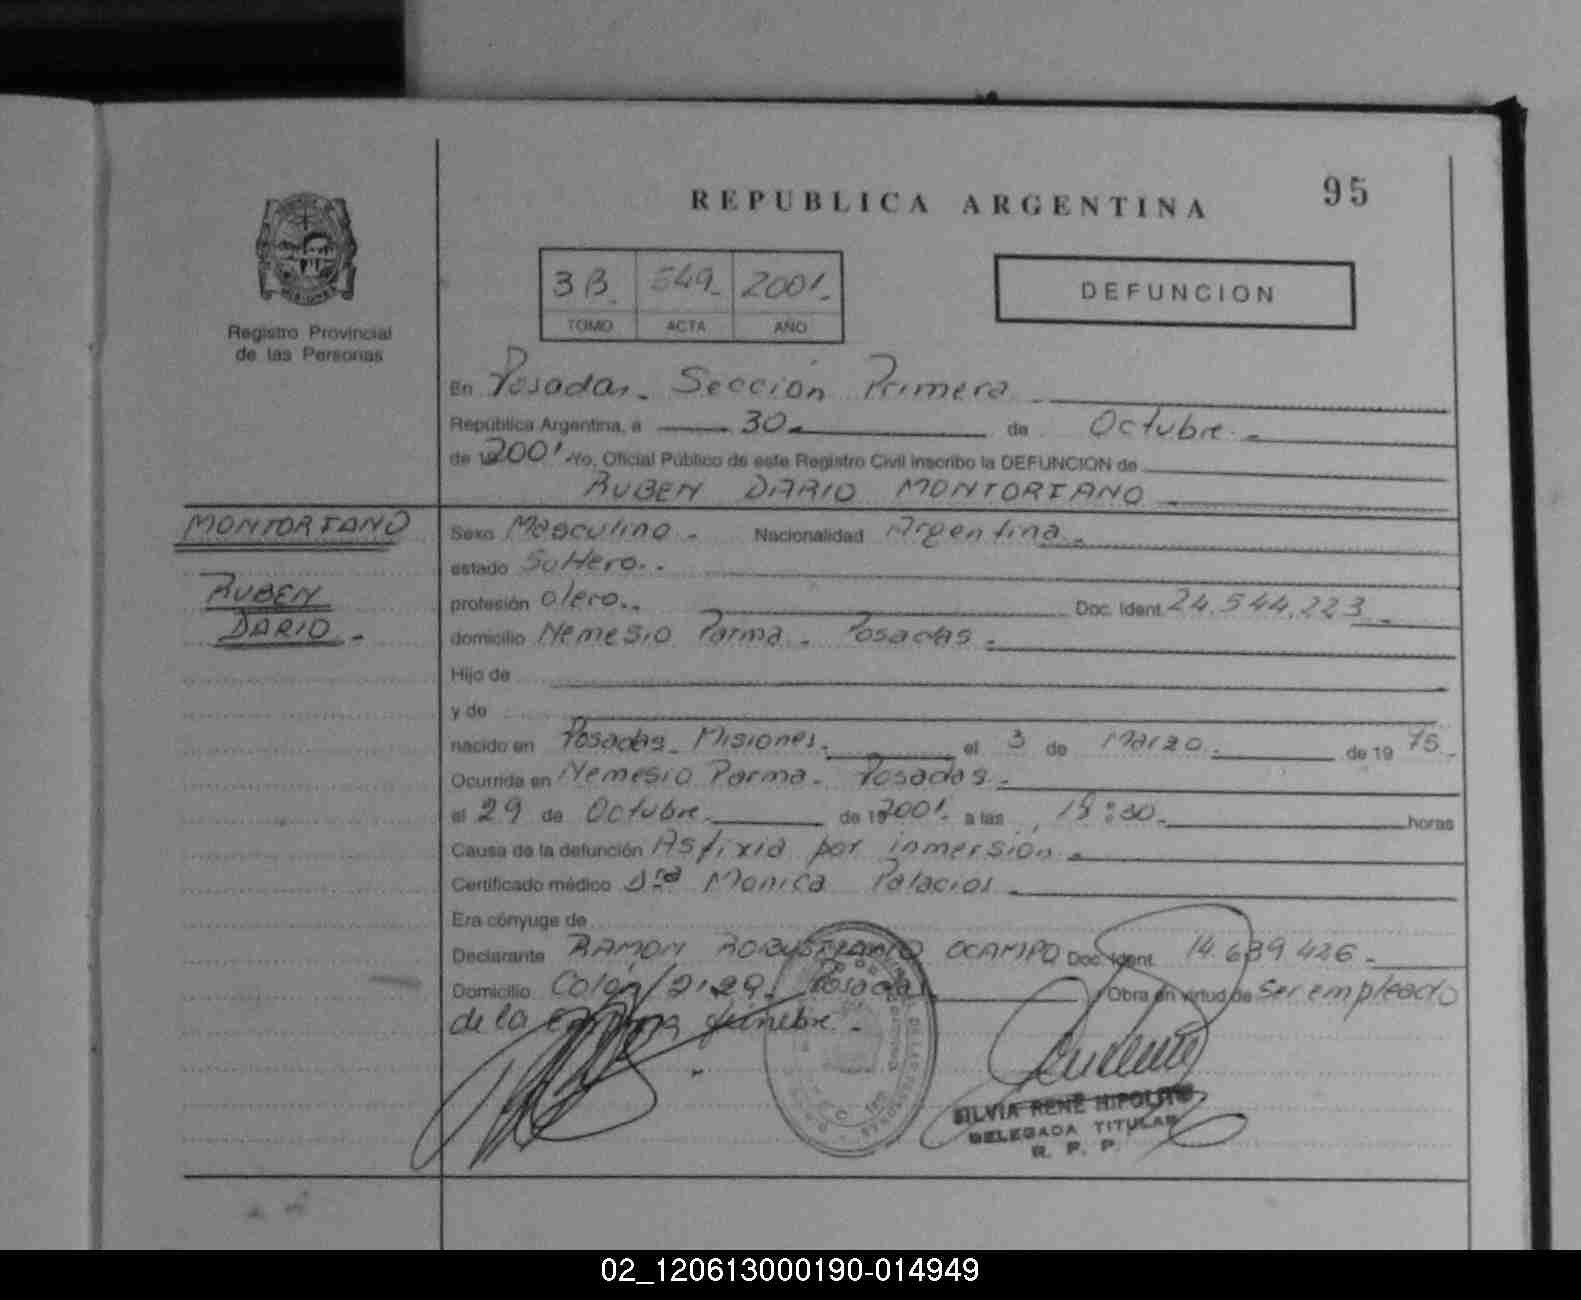 REPUBLICA ARGENTINA
95
Registro Provincial
de las Personas
3B. 549. 2001.
TOMO ACTA AÑO
DEFUNCION
En Posadas. Sección Primera
República Argentina, a 30 de Octubre.
de 19 2001. Yo, Oficial Público de este Registro Civil inscribo la DEFUNCION de
RUBEN DARIO MONTORIANO
MONTORIANO
RUBEN
DARIO.
Sexo Masculino. Nacionalidad Argentina.
estado Soltero..
profesión olero.. Doc. Ident. 24.544.223.
domicilio Nemesio Parma. Posadas.
Hijo de
y de
nacido en Posadas. Misiones. el 3 de Marzo. de 19 75.
Ocurrida en Nemesio Parma. Posadas.
el 29 de Octubre. de 19 2001. a las :30. horas
Causa de la defunción Asfixia por inmersión.
Certificado médico Dra Monica Palacios.
Era cónyuge de
Declarante RAMON OCAMPO Doc. Ident. 14.689.426.
Domicilio Colón 2129. Posadas. Obra en virtud de ser empleado
de la empresa fúnebre.
SILVIA RENÉ HIPOLITO
DELEGADA TITULAR
R. P. P.
02_120613000190-014949